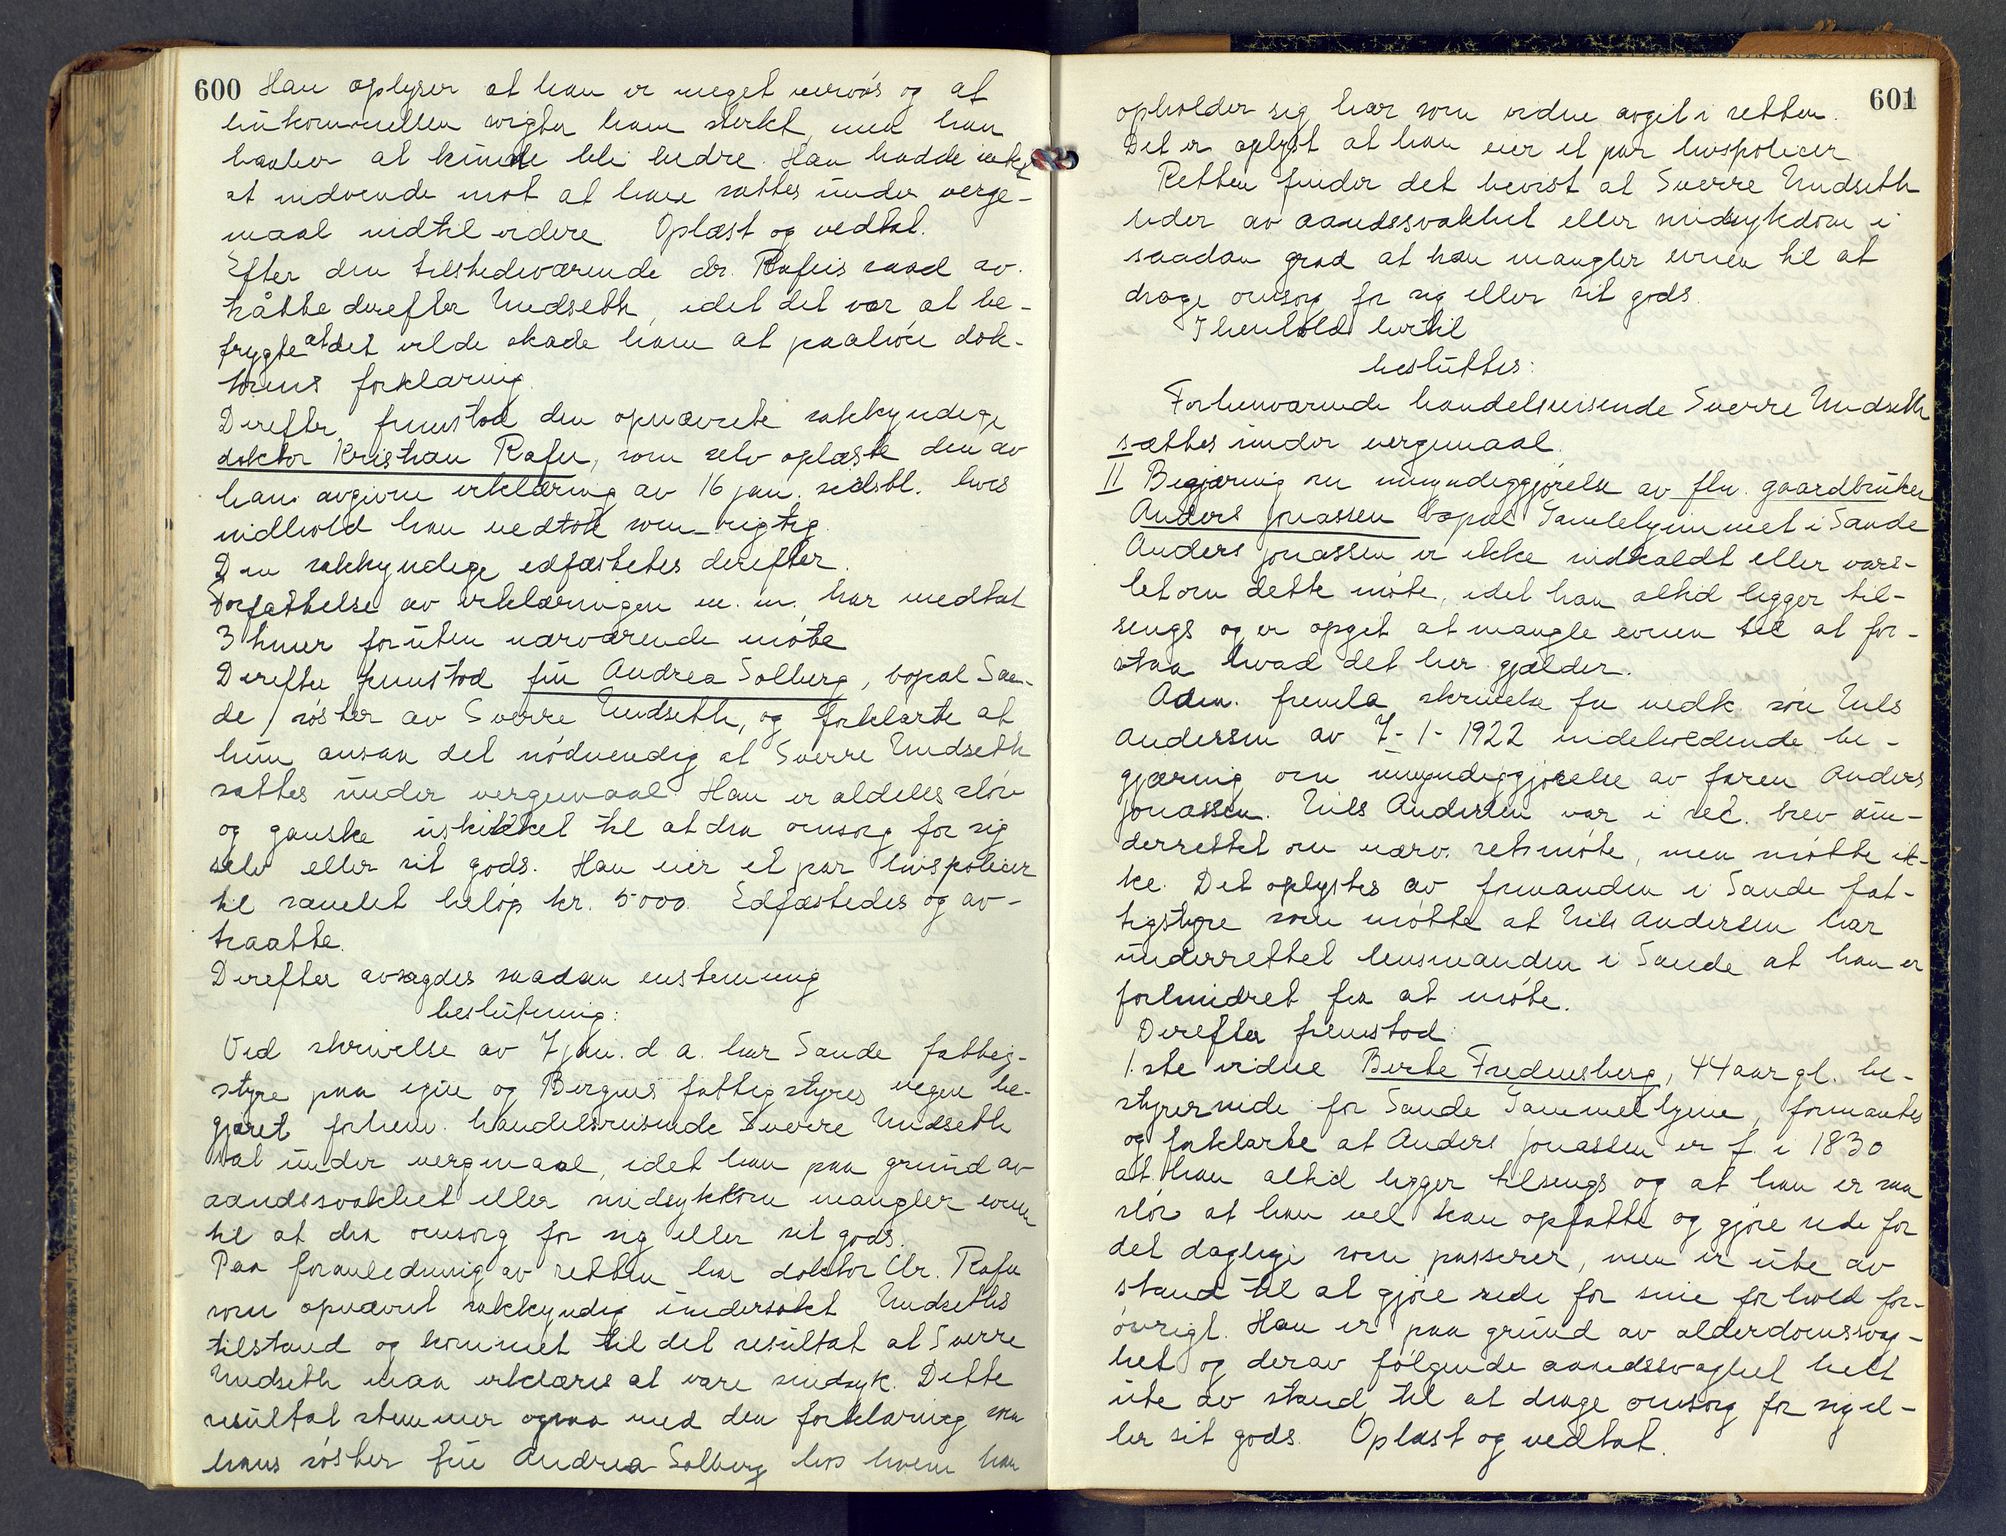 600 Han oplyser at han er meget nervøs og at
indkommelsen virker ham sterkt, men han
haaber at kunde bli bedre. Han hadde intet
at indvende mot at have sættes under verge-
maal indtil videre. Oplæst og vedtat.
Efter den tilstedeværende dr. Rafns raad av-
tråtte derefter Undseth, idet det var at be-
frygte at det vilde skade ham at paahøre dok-
torens forklaring.
Derefter fremstod den opnævnte sakkyndige
doktor Kristian Rafn, som selv oplæste den av
ham avgivne erklæring av 16 jan. sidstl. hvis
indhold han vedtok som rigtig.
Den sakkyndige edfæstetes derefter.
Forfattelse av erklæringen m. m. har medtat
3 timer foruten nærværende møte
Derefter fremstod fru Andrea Solberg, bopæl San-
de, søster av Sverre Undseth, og forklarte at
hun ansaa det nødvendig at Sverre Undseth
sættes under vergemaal. Han er aldeles sløv
og ganske uskikket til at dra omsorg for sig
selv eller sit gods. Han eier et par livspolicer
til samlet beløp kr. 5000. Edfæstedes og av-
traatte.
Derefter avsagdes saadan enstemmig
beslutning:
Ved skrivelse av 7 jan. d. a. har Sande fattig-
styre paa egne og Bergens fattigstyres vegne be-
gjæret forhenv. handelsreisende Sverre Undseth
sat under vergemaal, idet han paa grund av
aandssvakhet eller sindsykdom mangler evnen
til at dra omsorg for sig eller sit gods.
Paa foranledning av retten har doktor Chr. Rafn
som opnævnt sakkyndig undersøkt Undseths
tilstand og kommet til det resultat at Sverre
Undseth maa erklæres at være sindsyk. Dette
resultat stemmer ogsaa med den forklaring som
hans søster fru Andrea Solberg hos hvem han
601
opholder sig har som vidne avgit i retten.
Det er oplyst at han eier et par livspolicer
Retten finder det bevist at Sverre Undseth
lider av aandssvakhet eller sindsykdom i
saadan grad at han mangler evnen til at
drage omsorg for sig eller sit gods.
I henhold hertil
besluttes:
Forhenværende handelsreisende Sverre Undseth
sættes under vergemaal.
II Begjæring om umyndiggjørelse av fhv. gaardbruker
Anders Jonassen bopæl Gamlehjemmet i Sande
Anders Jonassen er ikke indkaldt eller vars-
let om dette møte, idet han altid ligger til-
sengs og er opgit at mangle evnen til at for-
staa hvad det her gjælder.
Adm. fremla skrivelse fra vedk. søn Nils
Andersen av 7-1-1922 indeholdende be-
gjæring om umyndiggjørelse av faren Anders
Jonassen. Nils Andersen var i rec. brev un-
derrettet om nærv. retsmøte, men møtte ik-
ke. Det oplystes av formanden i Sande fat-
tigstyre som møtte at Nils Andersen har
underrettet lensmanden i Sande at han er
forhindret fra at møte.
Derefter fremstod:
1.ste vidne Berte Fredensberg, 44 aar gl. be-
styrerinde for Sande Gammelhjem, formantes
og forklarte at Anders Jonassen er f. i 1830
at han altid ligger tilsengs og at han er saa
sløv at han vel kan opfatte og gjøre rede for
det daglige som passerer, men er ute av
stand til at gjøre rede for sine forhold for-
øvrigt. Han er paa grund av alderdomssvag-
het og derav følgende aandssvaghet helt
ute av stand til at drage omsorg for sig el-
ler sit gods. Oplæst og vedtat.